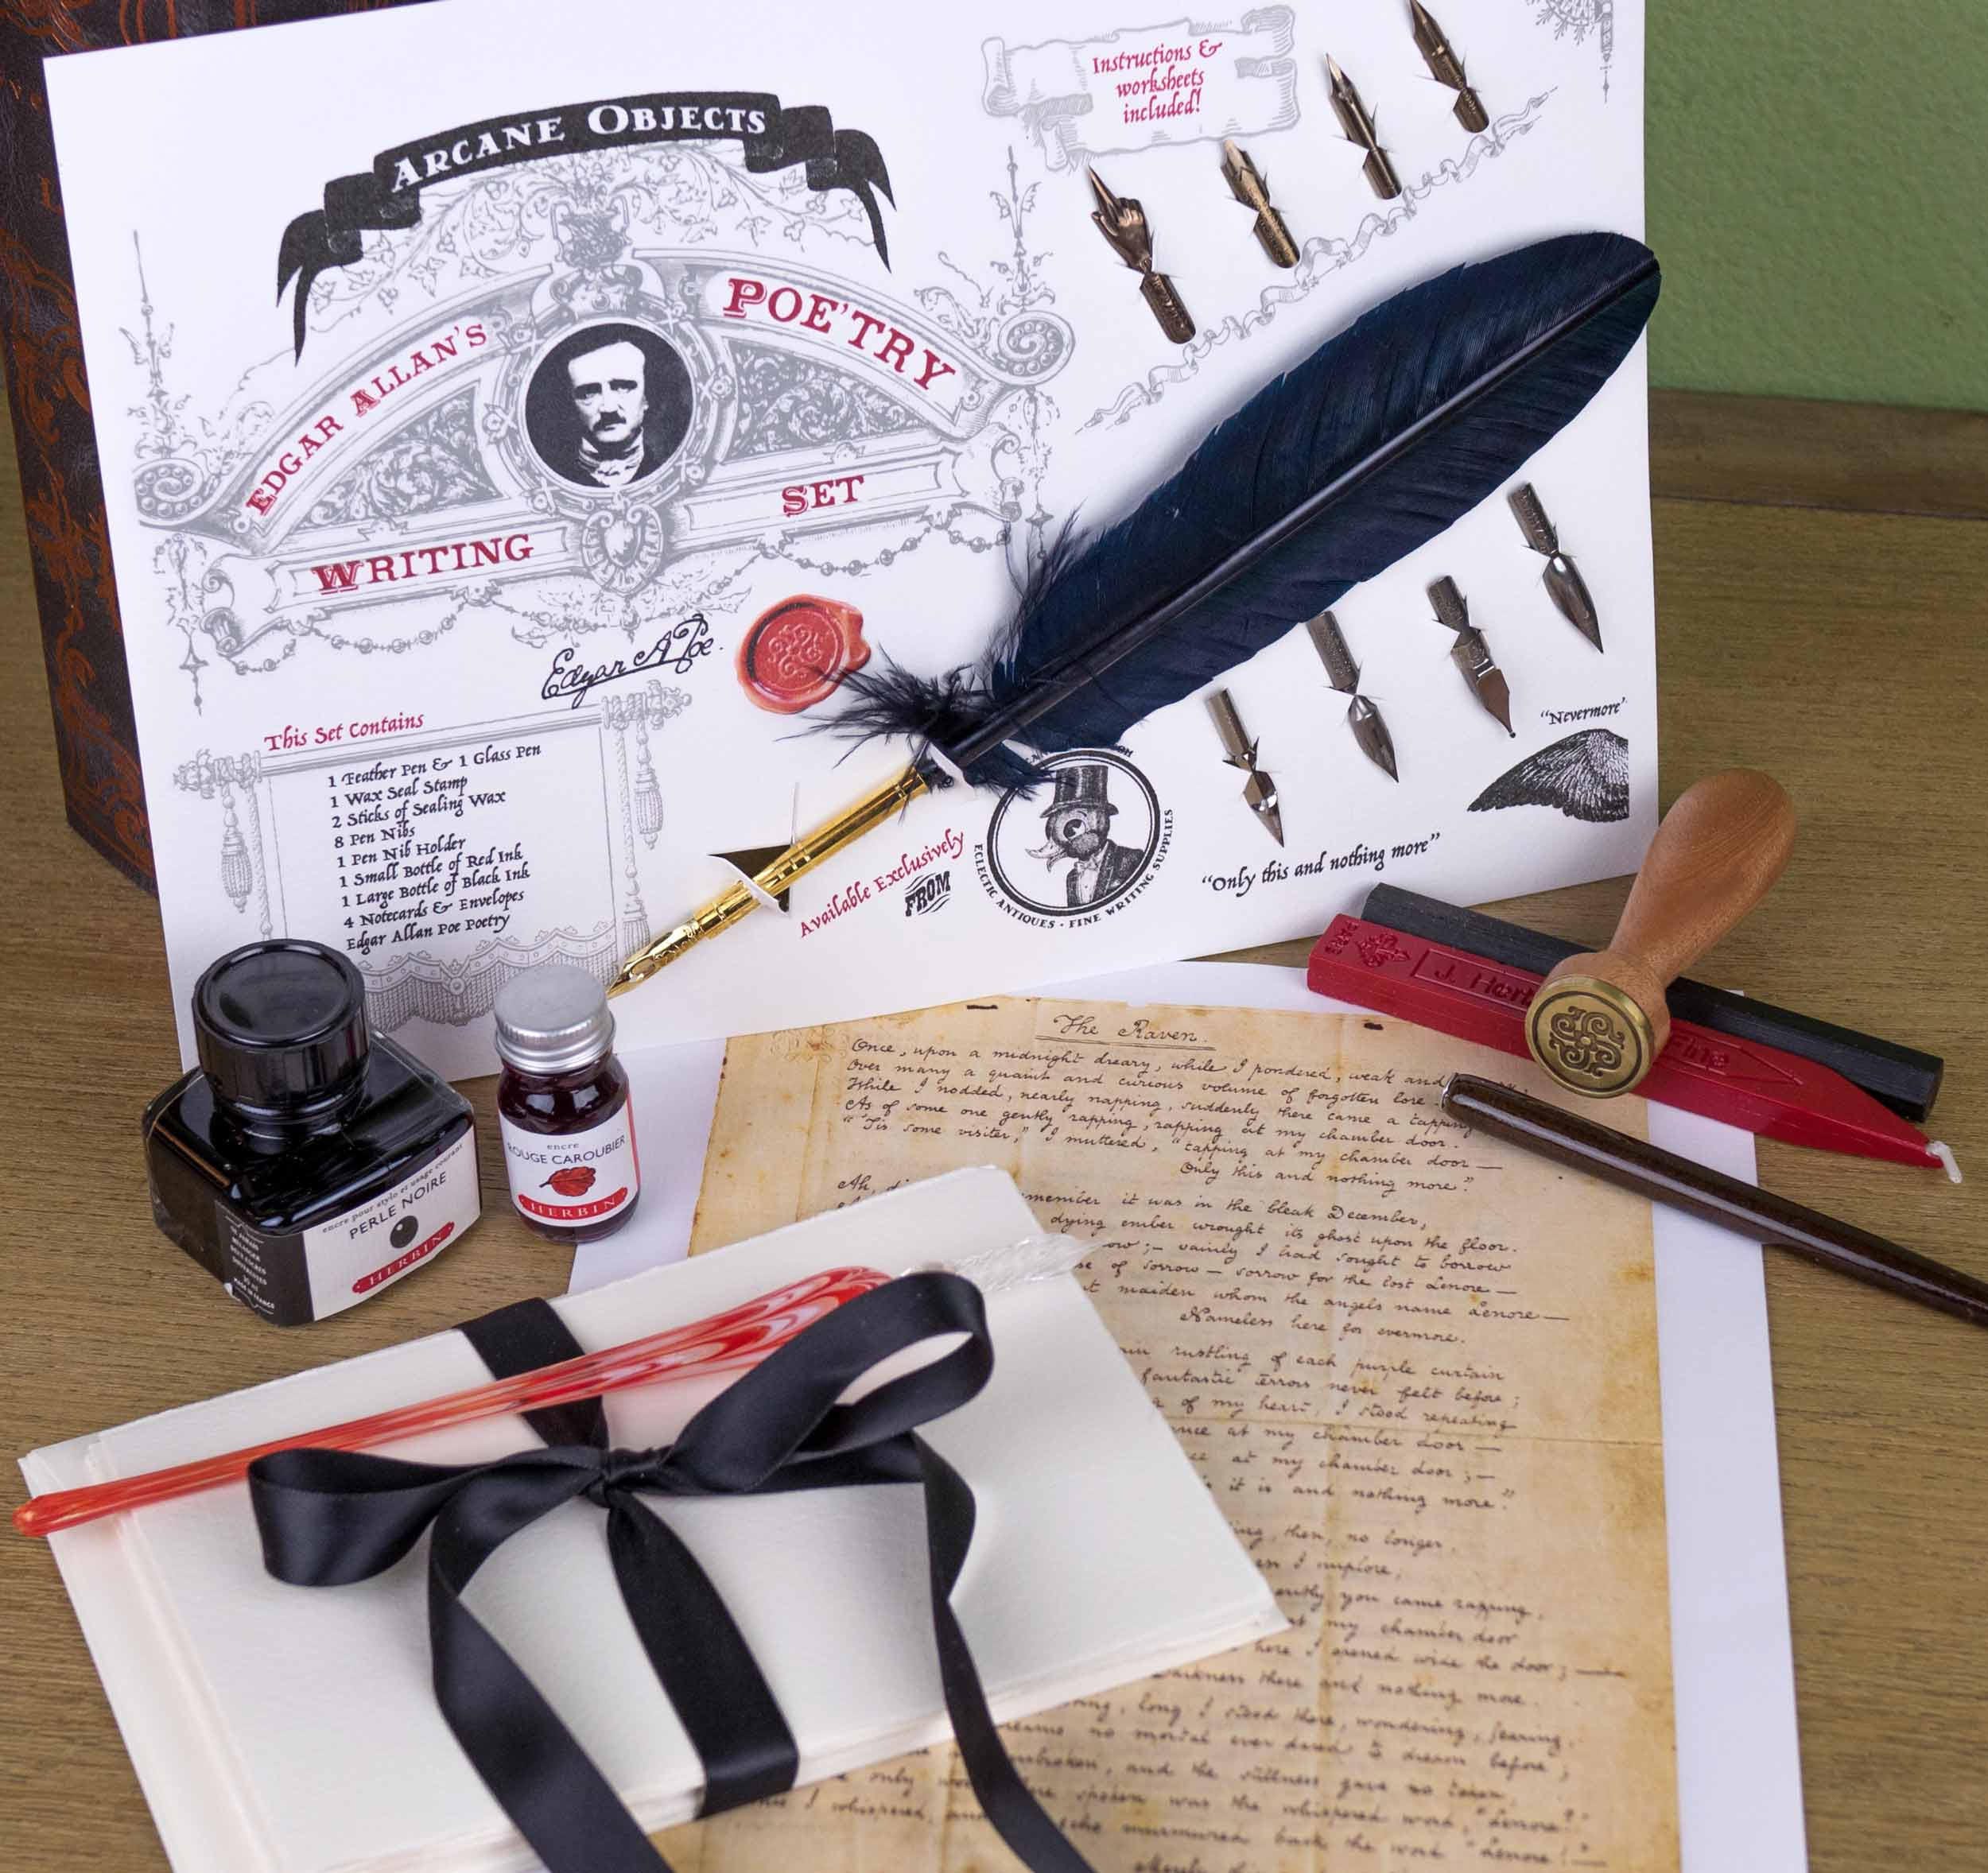 ARCANE OBJECTS
Instructions &
worksheets
included!
EDGAR ALLAN'S
POE'TRY
WRITING
SET
Edgar A Poe.
This Set Contains
1 Feather Pen & 1 Glass Pen
1 Wax Seal Stamp
2 Sticks of Sealing Wax
8 Pen Nibs
1 Pen Nib Holder
1 Small Bottle of Red Ink
1 Large Bottle of Black Ink
4 Notecards & Envelopes
Edgar Allan Poe Poetry
Available Exclusively
FROM
ECLECTIC ANTIQUES · FINE WRITING SUPPLIES
"Nevermore"
"Only this and nothing more"
PARIS
J. Her
encre pour stylo et usage courant
PERLE NOIRE
HERBIN
encre
ROUGE CAROUBIER
HERBIN
The Raven.
Once, upon a midnight dreary, while I pondered, weak and
Over many a quaint and curious volume of forgotten lore
While I nodded, nearly napping, suddenly there came a tapping
As of some one gently rapping, rapping at my chamber door.
"'Tis some visiter," I muttered, "tapping at my chamber door—
Only this and nothing more."
Ah,
it was in the bleak December,
dying ember wrought its ghost upon the floor.
vainly I had sought to borrow
of sorrow — sorrow for the lost Lenore —
maiden whom the angels name Lenore —
Nameless here for evermore.
rustling of each purple curtain
fantastic terrors never felt before;
of my heart, I stood repeating
at my chamber door —
at my chamber door; —
it is and nothing more."
then, no longer.
I implore,
you came rapping,
my chamber door
here I opened wide the door; —
Darkness there and nothing more.
long I stood there, wondering, fearing,
no mortal ever dared to dream before;
and the stillness gave no token,
only
spoken was the whispered word, "Lenore!"
I whispered, and
murmured back the word "Lenore!" —